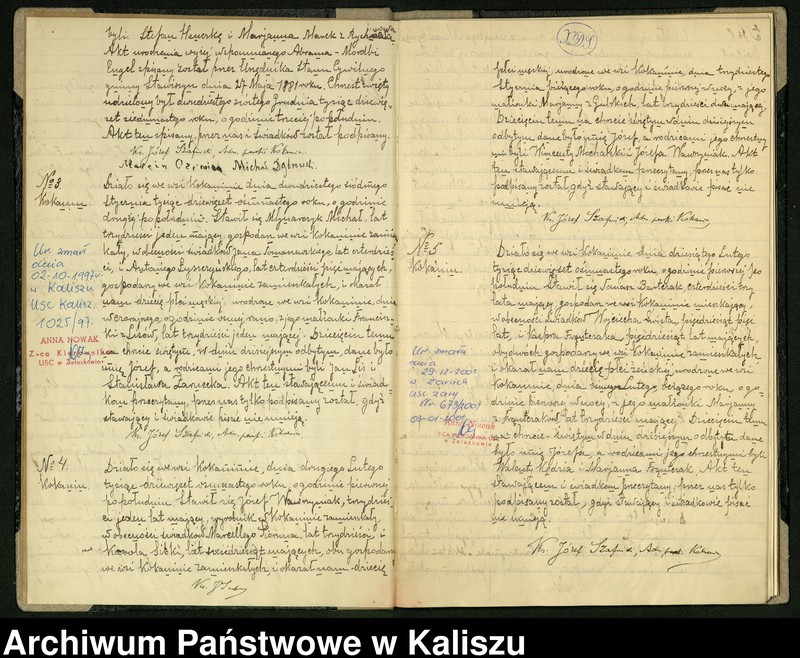 byli Stefan Heneczka i Marjanna Marek z Rychnowa
Akt urodzenia wyżej wspomnianego Abrama-Mordki
Engel spisany został przez Urzędnika Stanu Cywilnego
gminy Stawiszyn dnia 27 Maja 1881 roku. Chrzest święty
udzielony był dwudziestego szóstego Grudnia tysiąc dziewię-
ćset siedemnastego roku, o godzinie trzeciej po południu.
Akt ten spisany, przez nas i świadków został podpisany.
Ks. Józef Szafnicki, Adm. parafii Kokanin
Marcin Michał Dąbrowski.
№ 3.
Kokanin
Działo się we wsi Kokaninie dnia dwudziestego siódmego
Stycznia tysiąc dziewięćset osiemnastego roku, o godzinie
drugiej po południu. Stawił się Młynarczyk Michał, lat
trzydzieści jeden mający, gospodarz we wsi Kokaninie zamiesz-
kały, w obecności świadków Jana Tomaszewskiego lat czterdzieś-
ci, i Antoniego lat czterdzieści pięć mających,
gospodarzy we wsi Kokaninie zamieszkałych, i okazał
nam dziecię płci męskiej, urodzone we wsi Kokaninie, dnia
wczorajszego, o godzinie rano, z jego małżonki Francisz-
ki z Lisów, lat trzydzieści jeden mającej. Dziecięciu temu
na chrzcie świętym, w dniu dzisiejszym odbytym, dane było
imię Józef, a rodzicami jego chrzestnymi byli Jan Lis i
Stanisława Zarnecka. Akt ten stawającemu i świad-
kom przeczytany, przez nas tylko podpisany został, gdyż
stawający i świadkowie pisać nie umieją.
Ks. Józef Szafnicki, Adm. parafii Kokanin
Ur. zmarł
dnia
02-10-1997r
w Kaliszu
USC Kalisz
1025/97.
ANNA NOWAK
Z-ca Kierownika
USC w Żelazkowie
№ 4.
Kokanin.
Działo się we wsi Kokaninie, dnia drugiego Lutego
tysiąc dziewięćset osiemnastego roku, o godzinie pierwszej
po południu. Stawił się Józef Wawrzyniak, trzydzieś-
ci jeden lat mający, wyrobnik w Kokaninie zamieszkały,
w obecności świadków Marcellego lat trzydzieści, i
Karola lat sześćdziesiąt mających, obu gospodarzy
we wsi Kokaninie zamieszkałych, i okazał nam dziecię
Ks. J. Sz.
płci męskiej, urodzone we wsi Kokaninie, dnia trzydziestego
Stycznia bieżącego roku, o godzinie pierwszej w nocy, z jego
małżonki Marjanny z lat trzydzieści dwa mającej.
Dziecięciu temu na chrzcie świętym w dniu dzisiejszym
odbytym dane było imię Józef, a rodzicami jego chrzestny-
mi byli Wincenty i Józefa Wawrzyniak. Akt
ten stawającemu i świadkom przeczytany, przez nas tylko
podpisany został, gdyż stawający i świadkowie pisać nie
umieją.
Ks. Józef Szafnicki, Adm. parafii Kokanin
№ 5
Kokanin.
Działo się we wsi Kokaninie dnia dziesiątego Lutego
tysiąc dziewięćset osiemnastego roku, o godzinie pierwszej po
południu. Stawił się Tomasz Bartczak, czterdzieści trzy
lata mający, gospodarz we wsi Kokaninie mieszkający,
w obecności świadków Wojciecha Święta, pięćdziesiąt pięć
lat, i Kacpra Frątczaka, pięćdziesiąt lat mających,
obydwóch gospodarzy we wsi Kokaninie zamieszkałych
i okazał nam dziecię płci żeńskiej, urodzone we wsi
Kokaninie, dnia Lutego bieżącego roku, o go-
dzinie pierwszej w nocy, z jego małżonki Marjanny
z Frątczaków lat trzydzieści mającej. Dziecięciu temu
na chrzcie świętym w dniu dzisiejszym odbytym dane
było imię Józefa, a rodzicami jego chrzestnymi byli
Walenty Kędzia i Marjanna Frątczak. Akt ten
stawającemu i świadkom przeczytany, przez nas tylko
podpisany został, gdyż stawający i świadkowie pisać
nie umieją.
Ks. Józef Szafnicki, Adm. parafii Kokanin
Ur. zmarła
dnia
29-12-2001
w Żarach
USC Żary
Nr 679/2001
Anna Nowak
w Żelazkowie
Archiwum Państwowe w Kaliszu